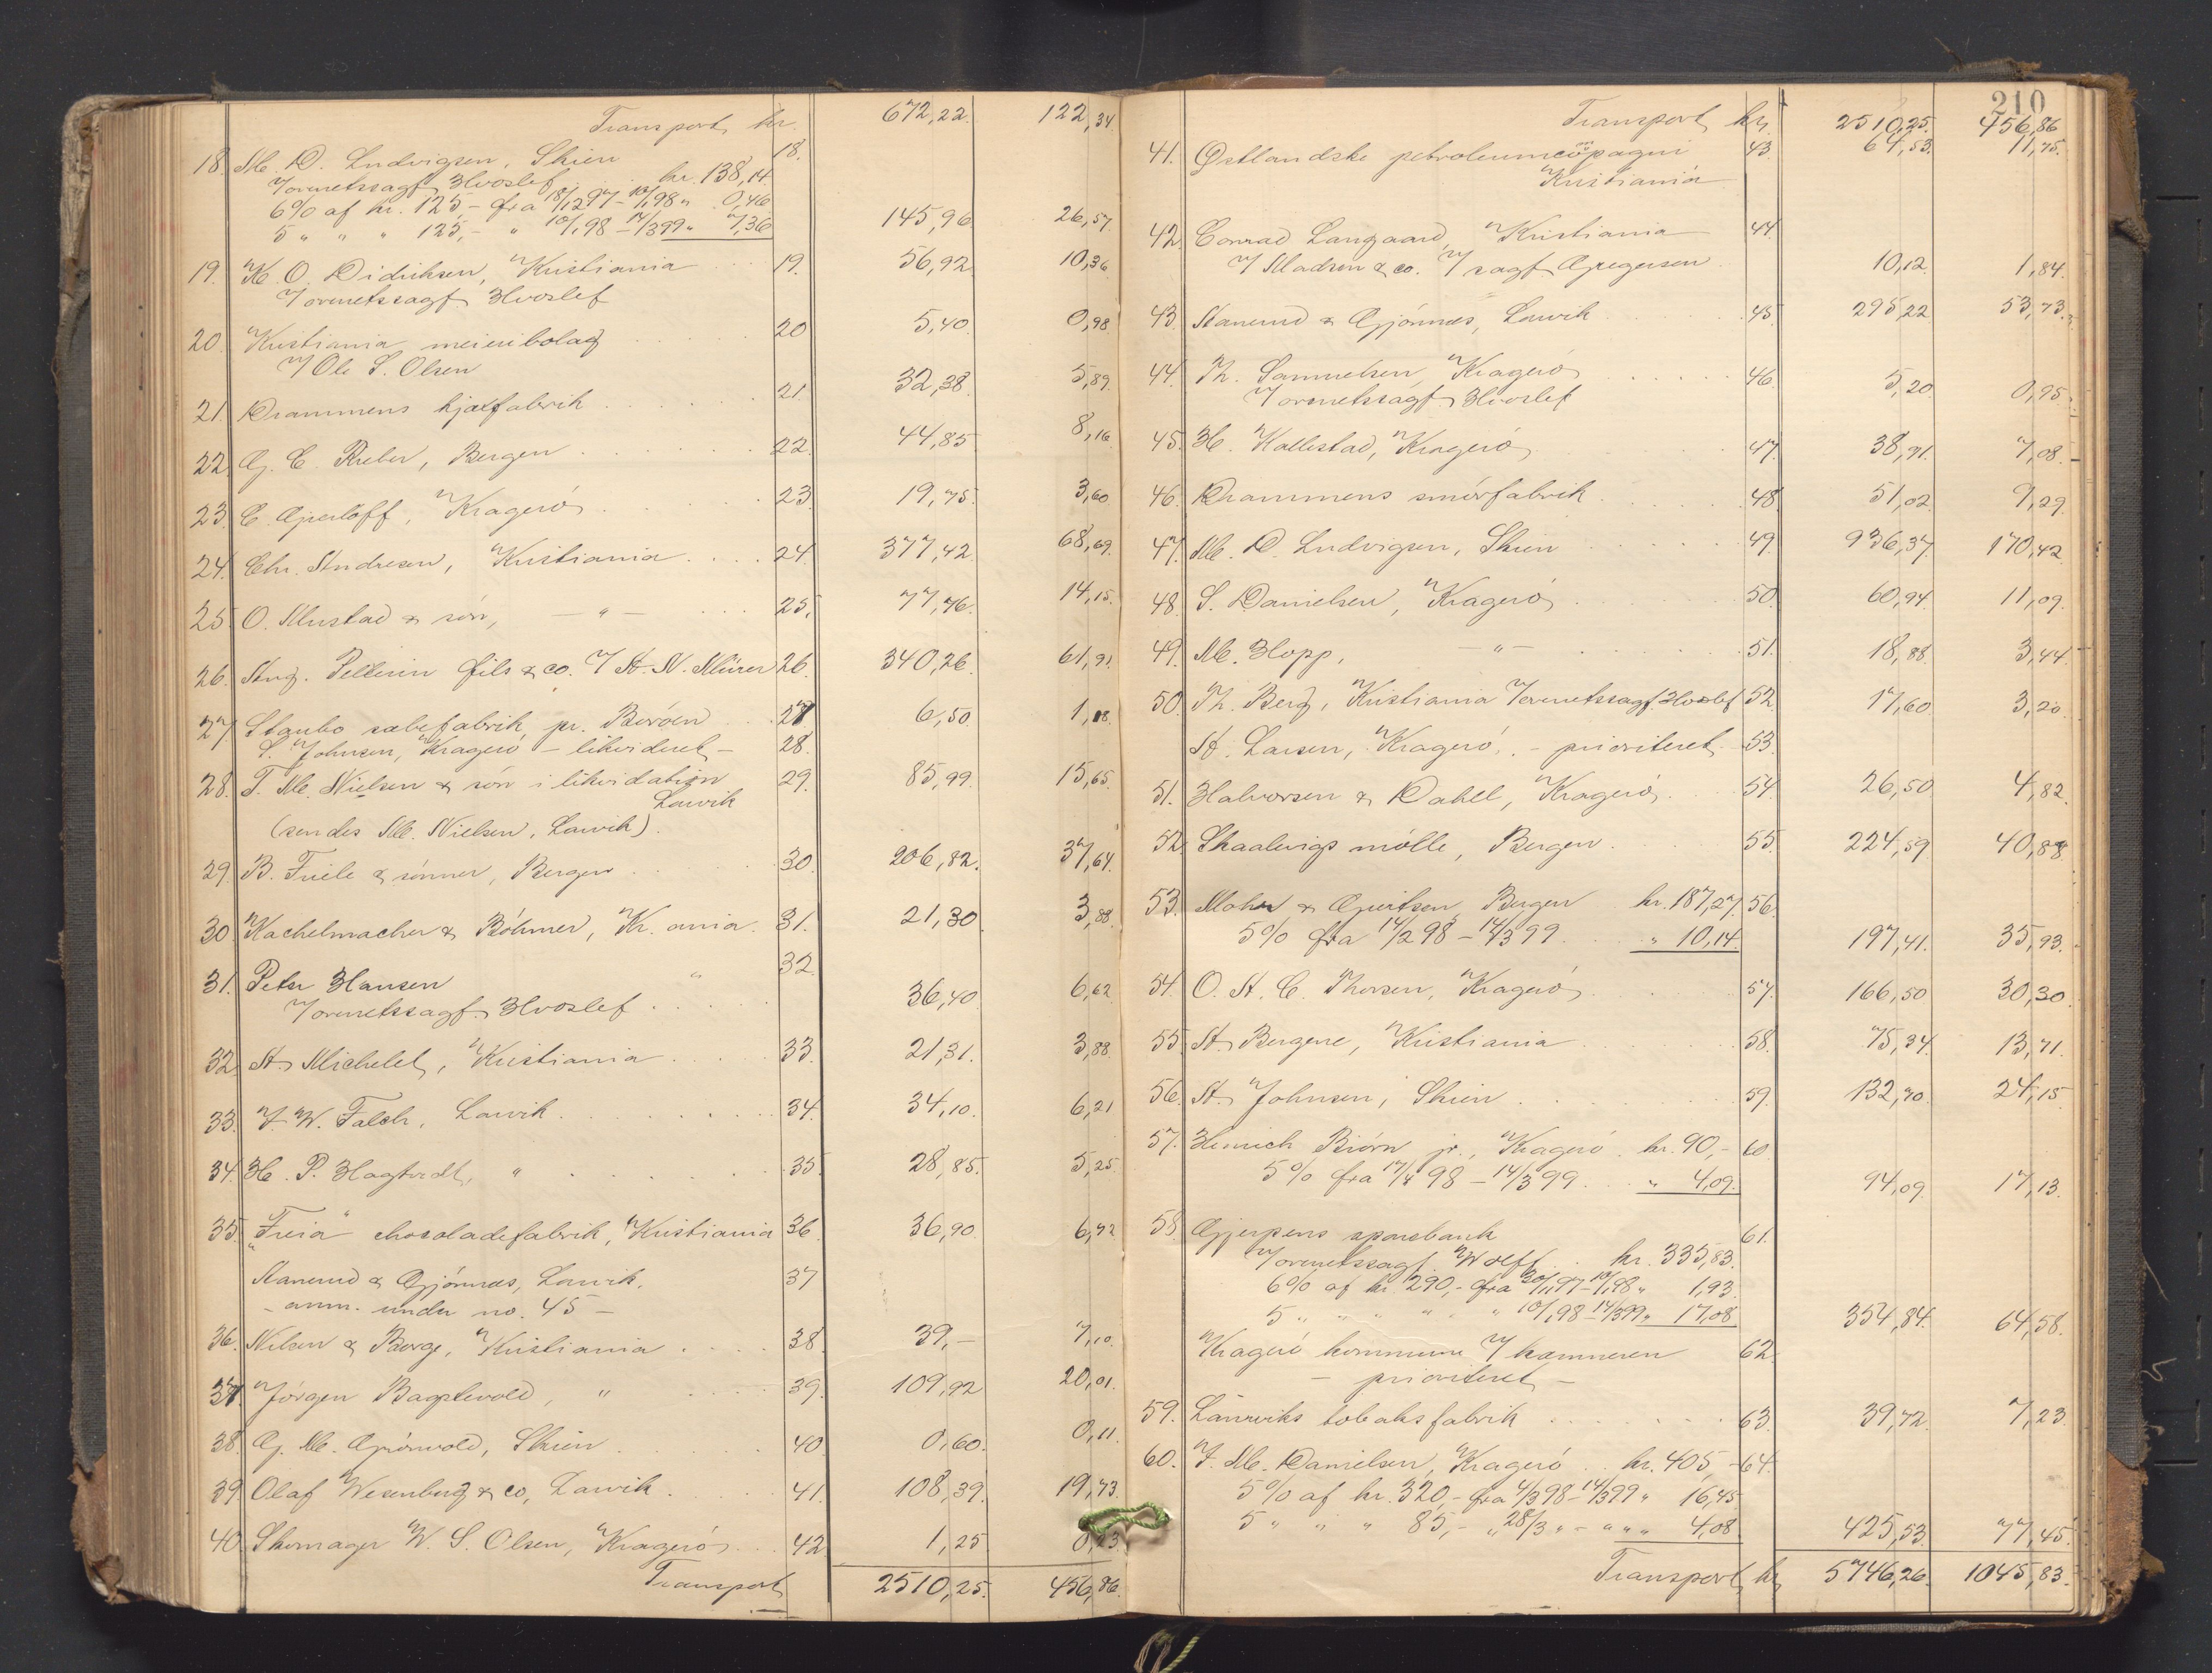 Transport kr. 672,22. 122,34.
18. M. D. Ludvigsen, Skien 18.
v/ overretssagf. Hvoslef . . kr. 138,14.
6% af kr. 125,- fra 18/12 97 - 10/1 98 " 0,46
5 " " " 125,- " 10/1 98 - 14/3 99 " 7,36 145,96 26,57.
19. K. O. Didriksen, Kristiania . . . 19. 56,92 10,36
v/ overretssagf. Hvoslef
20. Kristiania meieribolag . . . 20 5,40. 0,98
v/ Ole S. Olsen
21. Drammens kjæxfabrik . . . 21. 32,38. 5,89.
22. G. C. Rieber, Bergen . . . 22. 44,85 8,16
23. C. Gjerløff, Kragerø . . . 23. 19,75. 3,60
24. Chr. Andresen, Kristiania . . . 24. 377,42 68,69.
25. O. Mustad & søn, — " — . . . 25. 77,76. 14,15.
26. Aug. Pellerin fils & co. v/ A. N. Mürer 26. 340,26. 61,91.
27 Staubo sæbefabrik, pr. Barøen . . 27 6,50 1,18.
S. Johnsen, Kragerø - likvideret - 28.
28. T. M. Nielsen & søn i likvidation 29. 85,99. 15,65.
Larvik
(sendes M. Nielsen, Larvik).
29. B. Friele & sønner, Bergen . . . 30. 206,82. 37,64.
30. Kachelmacher & Böhmer, Kr.ania. 31. 21,30 3,88.
31. Peter Hansen " 32.
v/ overretssagf. Hvoslef . . . 36,40 6,62
32. A. Michelet, Kristiania . . . 33. 21,31. 3,88.
33. J. W. Falch, Larvik . . . 34. 34,10. 6,21
34. H. P. Hagtvedt, " . . . 35. 28,85. 5,25
35. "Freia" chocoladefabrik, Kristiania 36. 36,90. 6,72
Aanerud & Gjönnæs, Larvik, 37
- anm. under no. 45 -
36. Nilsen & Berge, Kristiania . . . 38. 39,— 7,10.
37. Jørgen Bagstevold, " . . . 39. 109,92 20,01.
38. G. M. Grönvold, Skien . . . 40. 0,60. 0,11.
39. Olaf Wesenberg & co, Larvik . . . 41. 108,39. 19,73.
40. Skomager W. S. Olsen, Kragerø . . . 42. 1,25 0,23.
Transport 2510,25. 456,86.
210
Transport kr. 2510,25. 456,86
41. Østlandske petroleumscompagni 43. 64,53. 11,75.
Kristiania
42. Conrad Langaard, Kristiania 44.
v/ Madsen & co. v/ sagf. Gregersen 10,12. 1,84.
43. Aanerud & Gjönnæs, Larvik . . . 45. 295,22 53,73.
44. Th. Samuelsen, Kragerø . . . 46. 5,20. 0,95
v/ overretssagf. Hvoslef
45. H. Kallestad, Kragerø . . . 47. 38,91. 7,08.
46. Drammens smørfabrik . . . 48. 51,02. 9,29.
47. M. D. Ludvigsen, Skien . . . 49. 936,37. 170,42
48. S. Danielsen, Kragerø . . . 50. 60,94. 11,09.
49. M. Hopp, — " — . . . 51. 18,88. 3,44.
50. Th. Berg, Kristiania v/ overretssagf. Hvoslef 52 17,60 3,20
A. Larsen, Kragerø, - prioriteret - 53.
51. Halvorsen & Dahll, Kragerø . . . 54. 26,50 4,82.
52. Skaalevigs mølle, Bergen . . . 55. 224,59 40,88
53. Mohn & Gjertsen, Bergen . kr. 187,27 56.
5% fra 14/2 98 - 14/3 99 . . " 10,14. 197,41. 35,93.
54. O. A. C. Thorsen, Kragerø . . . 57. 166,50. 30,30.
55. A. Bergene, Kristiania . . . 58. 75,34. 13,71.
56. A. Johnsen, Skien . . . 59. 132,70. 24,15
57. Henrich Biørn jr., Kragerø . kr. 90,- 60
5% fra 17/4 98 - 14/3 99 . . " 4,09. 94,09. 17,13.
58. Gjerpens sparebank 61.
v/ overretssagf. Wolff . . kr. 335,83.
6% af kr. 290,- fra 30/11 97 - 10/1 98 " 1,93
5 " " " " " 10/1 98 - 14/3 99 " 17,08 354,84. 64,58.
Kragerø kommune v/ kæmneren 62.
- prioriteret -
59. Laurviks tobaksfabrik . . . 63. 39,72. 7,23.
60. J. M. Danielsen, Kragerø . . kr. 405 - 64.
5% af kr. 320,- fra 4/3 98 - 14/3 99 " 16,45
5 " " " 85,- " 28/3 " - " " " 4,08. 425,53. 77,45.
Transport kr 5746,26. 1045,83.